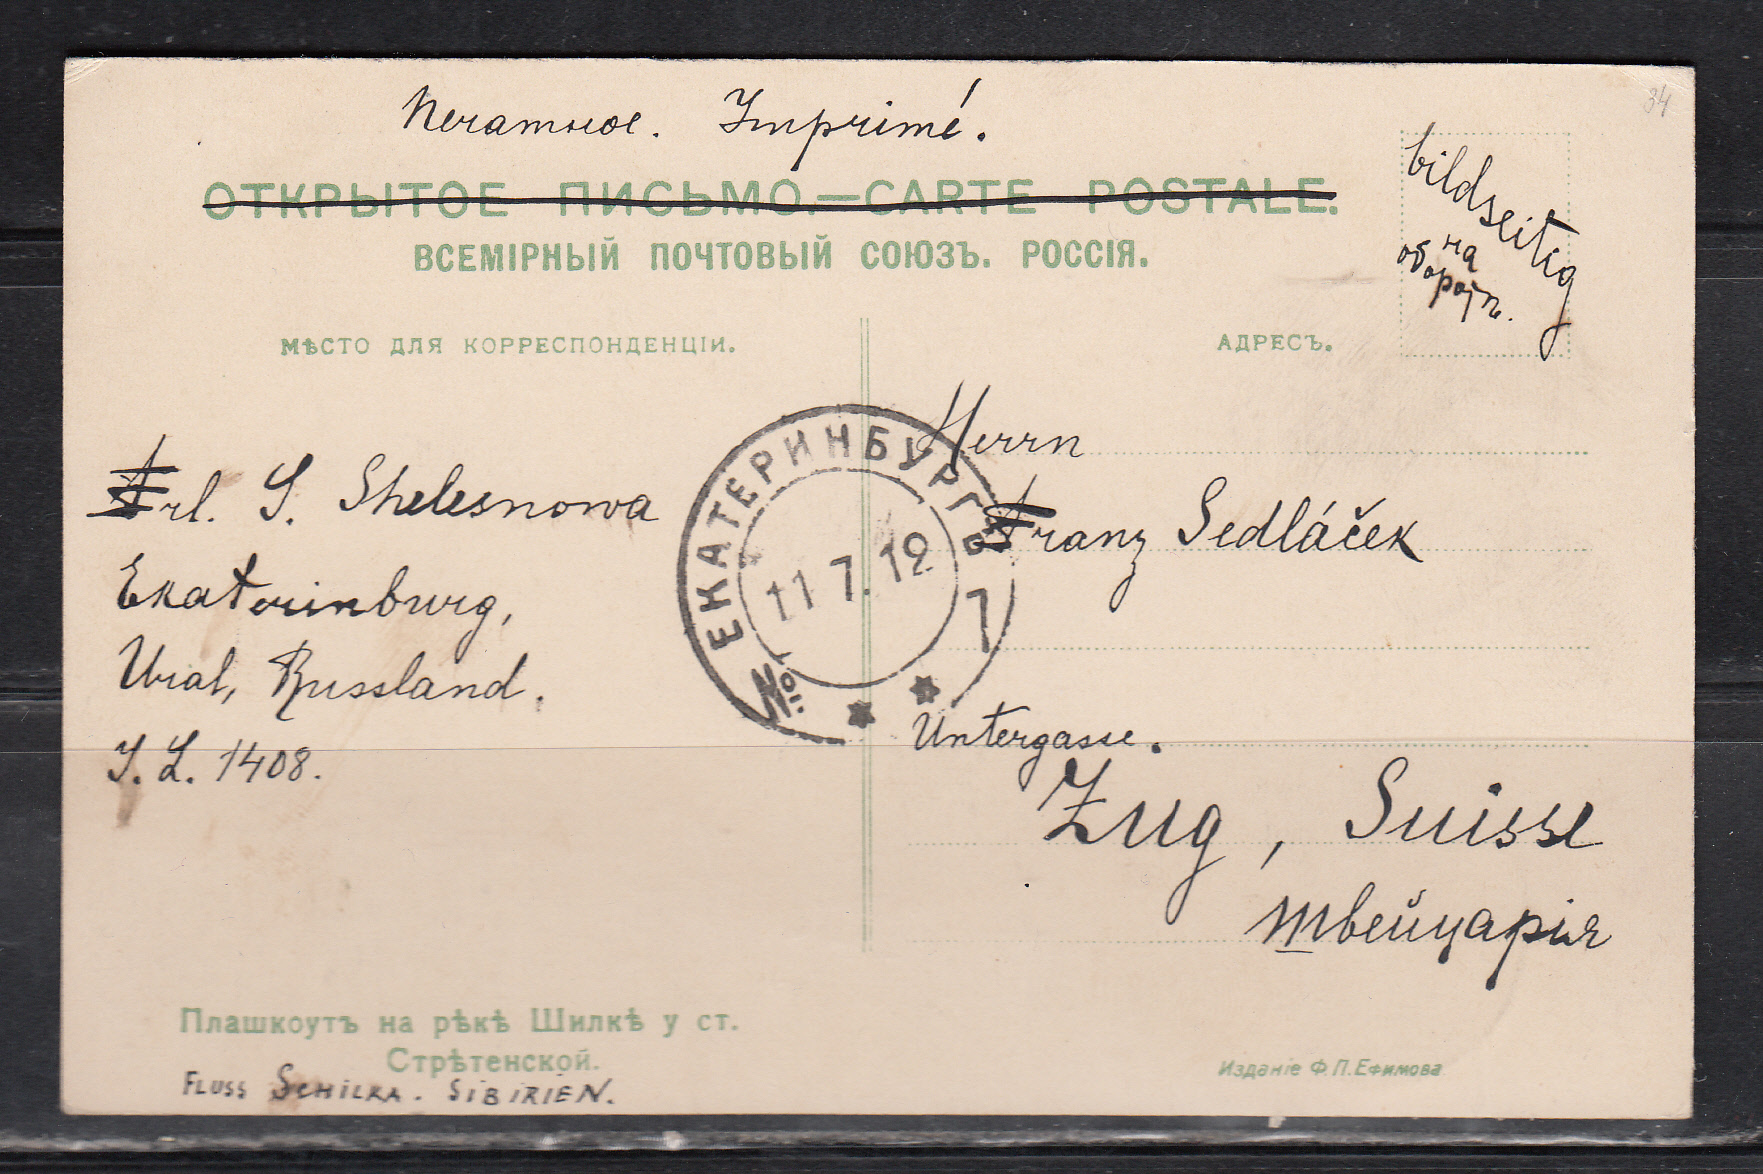 34
Печатное. Imprimé.
ОТКРЫТОЕ ПИСЬМО.—CARTE POSTALE.
ВСЕМІРНЫЙ ПОЧТОВЫЙ СОЮЗЪ. РОССІЯ.
bildseitig
на
оборотѣ.
МѢСТО ДЛЯ КОРРЕСПОНДЕНЦІИ.
АДРЕСЪ.
ЕКАТЕРИНБУРГЪ
11 7.12
7
Frl. S. Shelesnowa
Ekaterinburg,
Ural, Russland.
I. L. 1408.
Herrn
Franz Sedláček
Untergasse.
Zug, Suisse
Швейцарія
Плашкоутъ на рѣкѣ Шилкѣ у ст.
Стрѣтенской.
FLUSS SCHILKA. SIBIRIEN.
Изданіе Ф.П.Ефимова